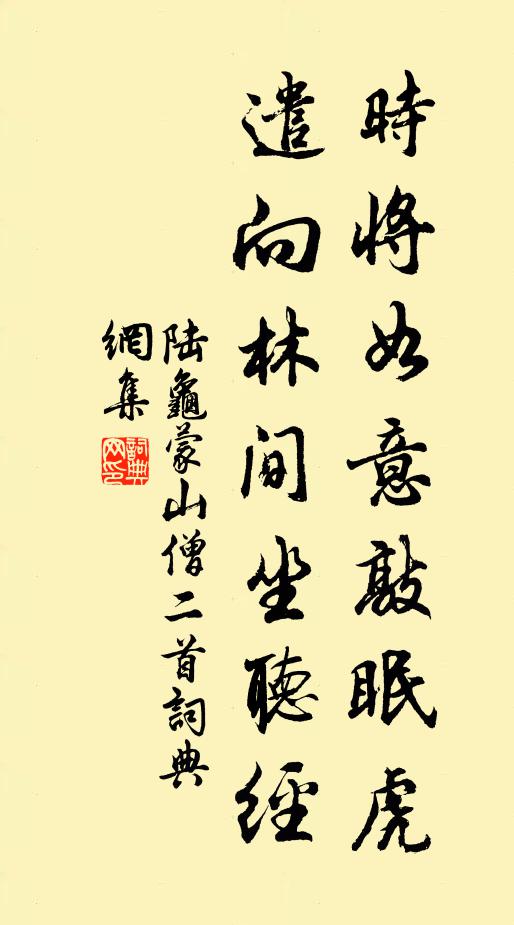 時將如意敲眠虎
遣向林間坐聽經
陆龜蒙山僧二首詞典
網集
詞典网印